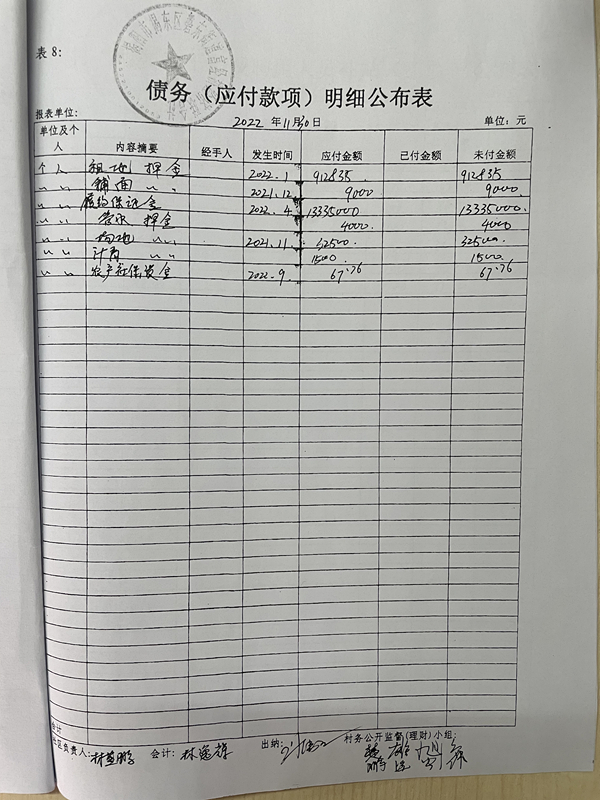 表 8:
债务（应付款项）明细公布表
报表单位: 2022 年 11月30日 单位: 元
单位及个人 内容摘要 经手人 发生时间 应付金额 已付金额 未付金额
个人 租地 押金 2022.1 912835. 912835.
〃 〃 铺面 〃 〃 2021.12 9000 9000.
履约保证金 2022.4 13335000 13335000.
〃 〃 押金 4000. 4000
〃 〃 〃 〃 2021.11. 32500. 32500.
〃 〃 〃 〃 1500. 1500.
〃 〃 农户社保资金 2022.9. 67.76 67.76
合计
社区负责人: 会计: 出纳: 村务公开监督(理财)小组: